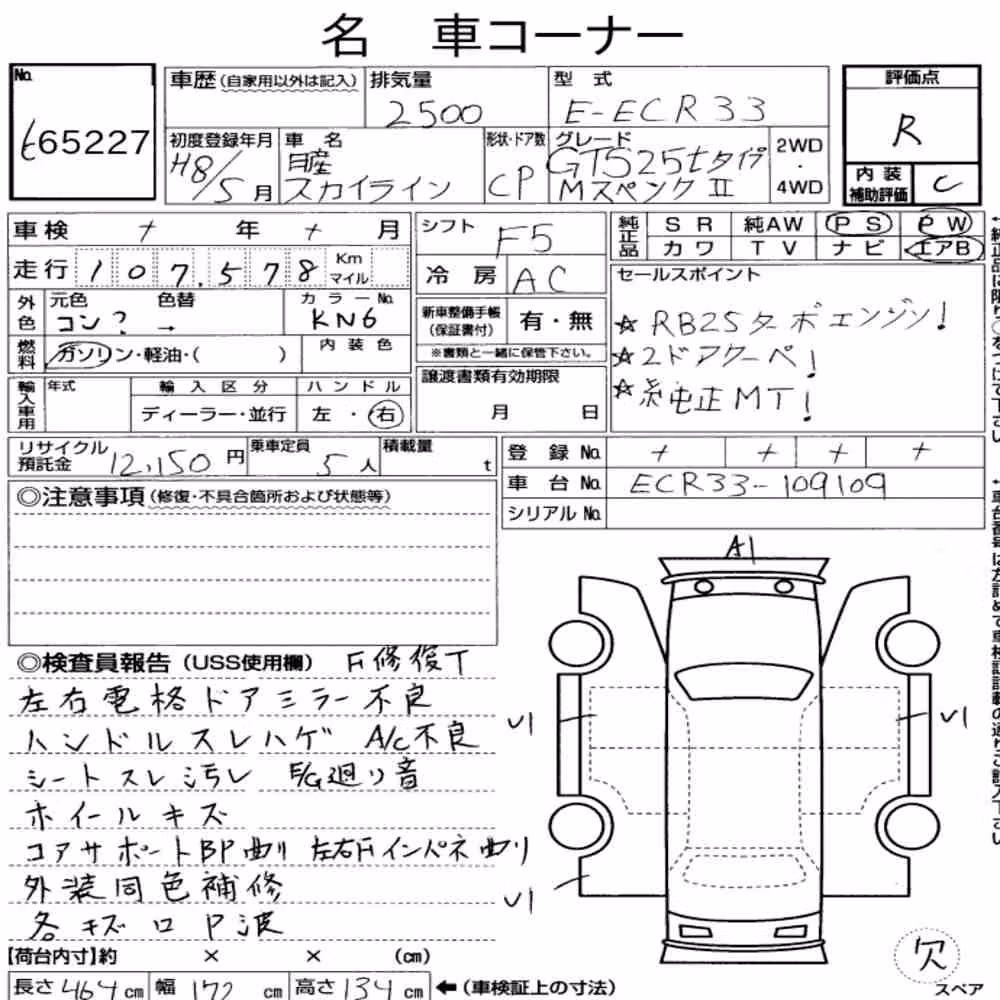 名 車コーナー
No. 65227
車歴(自家用以外は記入)
排気量 2500
型式 E-ECR33
評価点 R
内装補助評価 C
初度登録年月 H8/5月
車名 日産 スカイライン
形状・ドア数 CP
グレード GTS25tタイプMスペックⅡ
2WD・4WD
車検 + 年 + 月
シフト F5
純正品 SR 純AW PS PW
カワ TV ナビ エアB
走行 107,578 Km マイル
冷房 AC
セールスポイント
☆RB25ターボエンジン!
☆2ドアクーペ!
☆純正MT!
外色 元色 コン? → 色替 カラーNo. KN6
新車整備手帳(保証書付) 有・無
※書類と一緒に保管下さい。
燃料 ガソリン・軽油・( )
内装色
輸入車用 年式 輸入区分 ディーラー・並行 ハンドル 左・右
譲渡書類有効期限 月 日
リサイクル預託金 12,150円
乗車定員 5人
積載量 t
登録No. + + + +
車台No. ECR33-109109
シリアルNo.
◎注意事項(修復・不具合箇所および状態等)
◎検査員報告(USS使用欄) F修復T
左右電格ドアミラー不良
ハンドルスレハゲ A/C不良
シートスレ汚レ E/G廻り音
ホイールキズ
コアサポートBP曲り 左右Fインパネ曲り
外装同色補修
各キズロP波
A1
V1
V1
V1
【荷台内寸】約 × × (cm)
長さ464cm 幅172cm 高さ134cm ←(車検証上の寸法)
欠
スペア